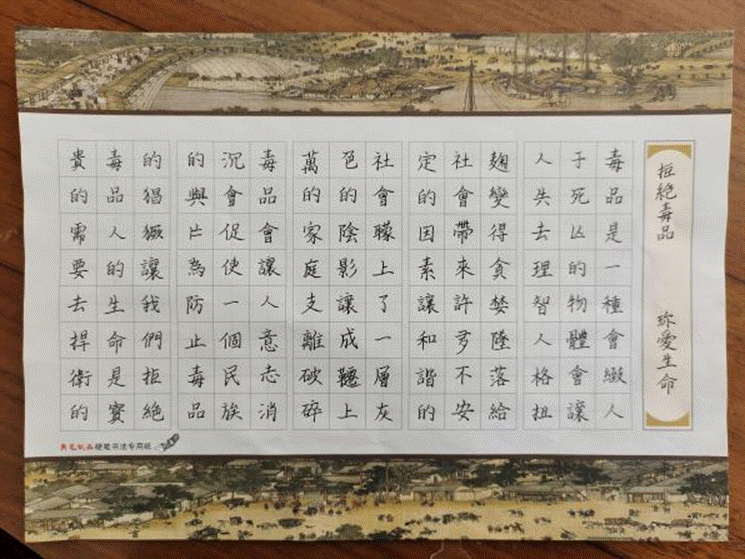 拒絶毒品 珎愛生命
毒品是一種會緻人
于死亾的物體會讓
人失去理智人格扭
麹變得貪婪隆落給
社會帶來許多不安
定的因素讓和諧的
社會矇上了一層灰
色的陰影讓成韆上
萬的家庭支離破碎
毒品會讓人意志消
沉會促使一個民族
的興片為防止毒品
的猖獗讓我們拒絕
毒品人的生命是寶
貴的需要去捍衛的
硬笔书法专用纸